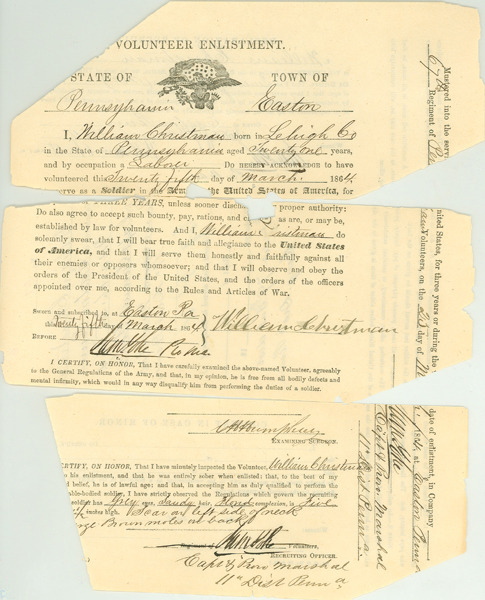 VOLUNTEER ENLISTMENT.
STATE OF TOWN OF
Pennsylvania Easton
I, William Christman born in Lehigh Co
in the State of Pennsylvania aged Twenty one years,
and by occupation a Laborer Do HEREBY ACKNOWLEDGE to have
volunteered this Twenty fifth day of March 1864,
serve as a Soldier in the Army of the United States of America, for
THREE YEARS, unless sooner proper authority;
Do also agree to accept such bounty, pay, rations, and as are, or may be,
established by law for volunteers. And I, William Christman do
solemnly swear, that I will bear true faith and allegiance to the United States
of America, and that I will serve them honestly and faithfully against all
their enemies or opposers whomsoever; and that I will observe and obey the
orders of the President of the United States, and the orders of the officers
appointed over me, according to the Rules and Articles of War.
Sworn and subscribed to, at Easton Pa
this Twenty fifth day of March 1864 William Christman
BEFORE
I CERTIFY, ON HONOR, That I have carefully examined the above-named Volunteer, agreeably
to the General Regulations of the Army, and that, in my opinion, he is free from all bodily defects and
mental infirmity, which would in any way disqualify him from performing the duties of a soldier.
EXAMINING SURGEON.
CERTIFY, ON HONOR, That I have minutely inspected the Volunteer, William Christman
to his enlistment, and that he was entirely sober when enlisted; that, to the best of my
and belief, he is of lawful age; and that, in accepting him as duly qualified to perform the
able-bodied soldier, I have strictly observed the Regulations which govern the recruiting
soldier has Grey eyes, Sandy hair, complexion, is Five
inches high. Scar on left side of neck
Brown moles on back
Volunteers,
RECRUITING OFFICER.
Capt & Prov Marshal
11th Dist Penn a
Mustered into the
67th Regiment of
United States, for three years or during the
Volunteers, on the day of
date of enlistment, in Company
1864, at Easton
Capt & Prov Marshal
11th Dist Penn a.